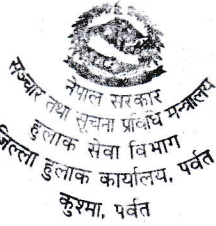 नेपाल सरकार
सञ्चार तथा सूचना प्रविधि मन्त्रालय
हुलाक सेवा विभाग
जिल्ला हुलाक कार्यालय, पर्वत
कुश्मा, पर्वत